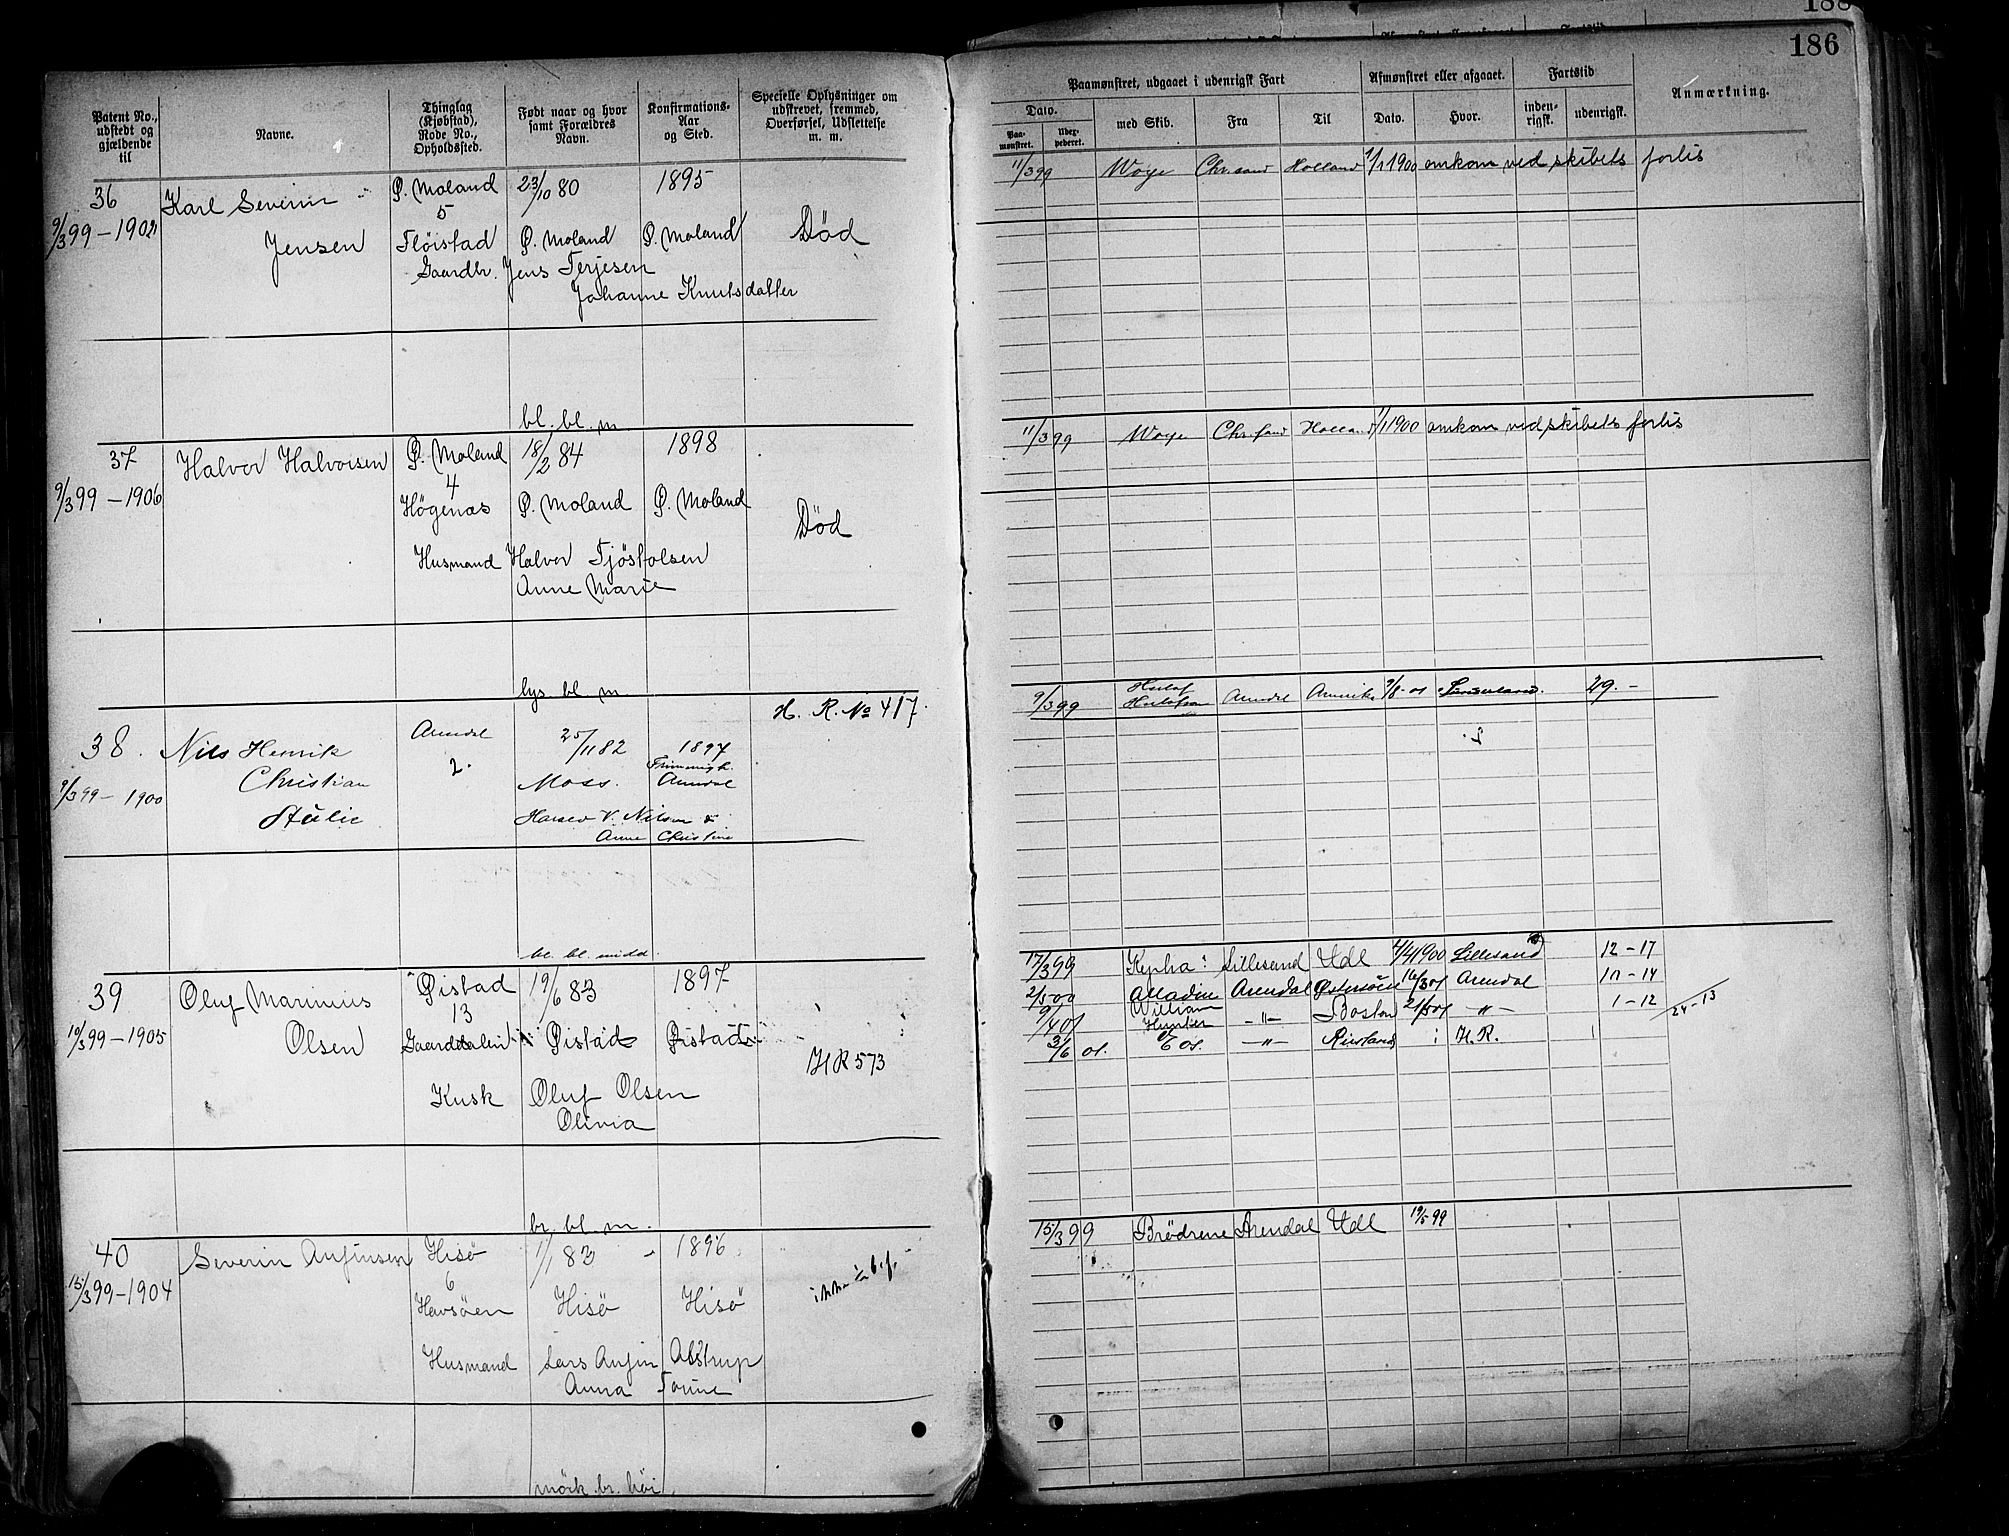 188
186
Patent No., udstedt og gjældende til
Navne.
Thinglag (Kjøbstad), Rode No., Opholdssted.
Født naar og hvor samt Forældres Navn.
Konfirmations-Aar og Sted.
Specielle Oplysninger om udskrevet, fremmed, Overførsel, Udslettelse m. m.
Paamønstret, udgaaet i udenrigsk Fart
Afmønstret eller afgaaet.
Fartstid
Anmærkning.
Dato.
med Skib.
Fra
Til
Dato.
Hvor.
inden-rigsk.
udenrigsk.
Paa-mønstret.
36
Karl Severin
Ø. Moland
23/10 80
1895
9/3 99 – 1902
Jensen
5
Fløistad
Ø. Moland
Ø. Moland
Død
Gaardbr. Jens Terjesen
Johanne Knutsdatter
bl. bl. m
11/3 99
Woye
Chr.sand
Holland
1/1 1900
omkom ved skibets forlis
37
Halvor Halvorsen
Ø. Moland
18/2 84
1898
9/3 99 – 1906
4
Høgenæs
Ø. Moland
Ø. Moland
Død
Husmand Halvor Tjøstolsen
Anne Marie
lys. bl. m.
11/3 99
Woye
Chr.sand
Holland
1/1 1900
omkom ved skibets forlis
38.
Nils Henrik
Arendal
25/11 82
1897
H. R. No 417.
9/3 99 – 1900
Christian
2.
Moss.
Arendal
Nilsen &
Anne Christine
bl. bl. midd.
9/3 99
Arendal
Amerika
9/8 - 01
29. –
39
Oluf Marinius
Øistad
19/6 83
1897
10/3 99 – 1905
Olsen
13
Gaarddalen
Øistad
Øistad
HR 573
Kusk
Oluf Olsen
Olivia
br. bl. m.
17/3 99
Kepha
Lillesand
Udl
4/4 1900
Lillesand
12 – 17
2/5 00
Alladin
Arendal
Østersøen
16/3 01
Arendal
11 – 14
9/4 01
William Hunter
– „ –
Boston
21/5 01
– „ –
1 – 12
24 – 13
3/6 01.
Eos.
– „ –
Rusland
H. R.
40
Severin Anfinsen
Hisø
1/1 83
1896
15/3 99 – 1904
6
Havsøen
Hisø
Hisø
Husmand
Lars Anfin Alstrup
Anna Tomine
mørk. br. høi
15/3 99
Brødrene
Arendal
Udl
19/5 99